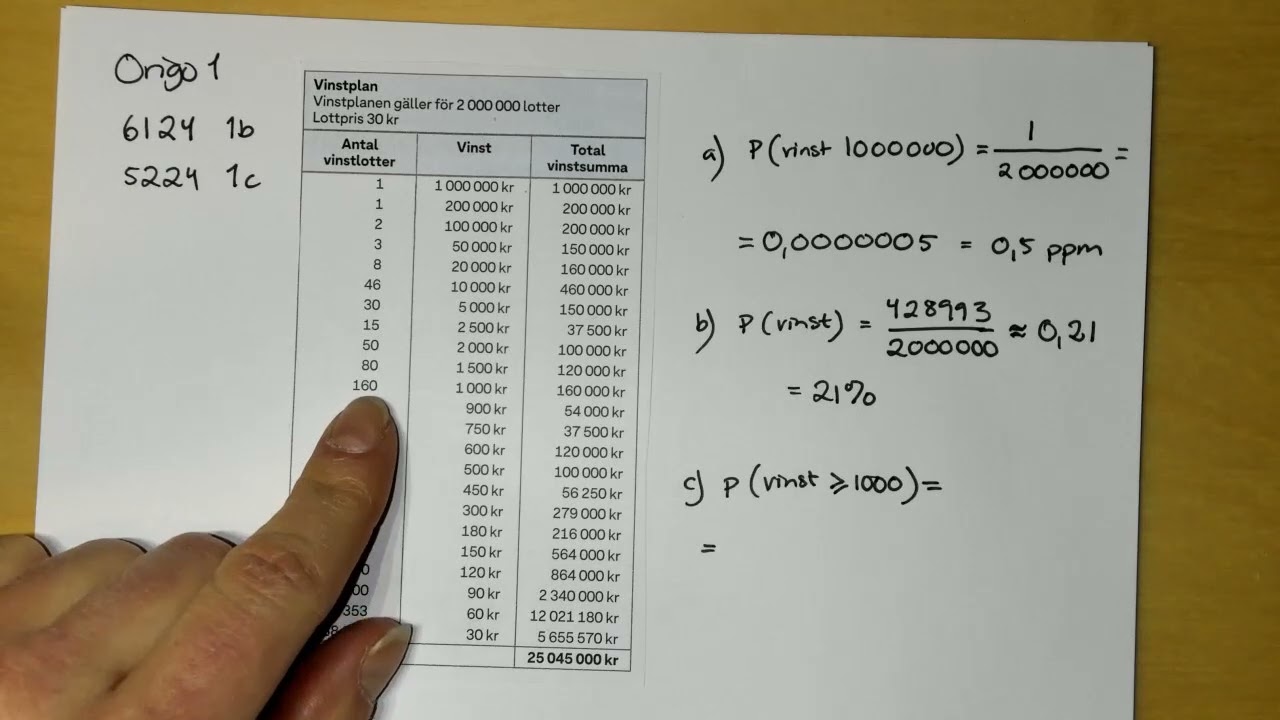 Origo 1
6124 1b
5224 1c
Vinstplan
Vinstplanen gäller för 2 000 000 lotter
Lottpris 30 kr
Antal vinstlotter Vinst Total vinstsumma
1 1 000 000 kr 1 000 000 kr
1 200 000 kr 200 000 kr
2 100 000 kr 200 000 kr
3 50 000 kr 150 000 kr
8 20 000 kr 160 000 kr
46 10 000 kr 460 000 kr
30 5 000 kr 150 000 kr
15 2 500 kr 37 500 kr
50 2 000 kr 100 000 kr
80 1 500 kr 120 000 kr
160 1 000 kr 160 000 kr
900 kr 54 000 kr
750 kr 37 500 kr
600 kr 120 000 kr
500 kr 100 000 kr
450 kr 56 250 kr
300 kr 279 000 kr
180 kr 216 000 kr
150 kr 564 000 kr
120 kr 864 000 kr
90 kr 2 340 000 kr
353 60 kr 12 021 180 kr
30 kr 5 655 570 kr
25 045 000 kr
a) P(vinst 1000000) = 1/2000000 =
= 0,0000005 = 0,5 ppm
b) P(vinst) = 428993/2000000 ≈ 0,21
= 21%
c) P(vinst ⩾ 1000) =
=